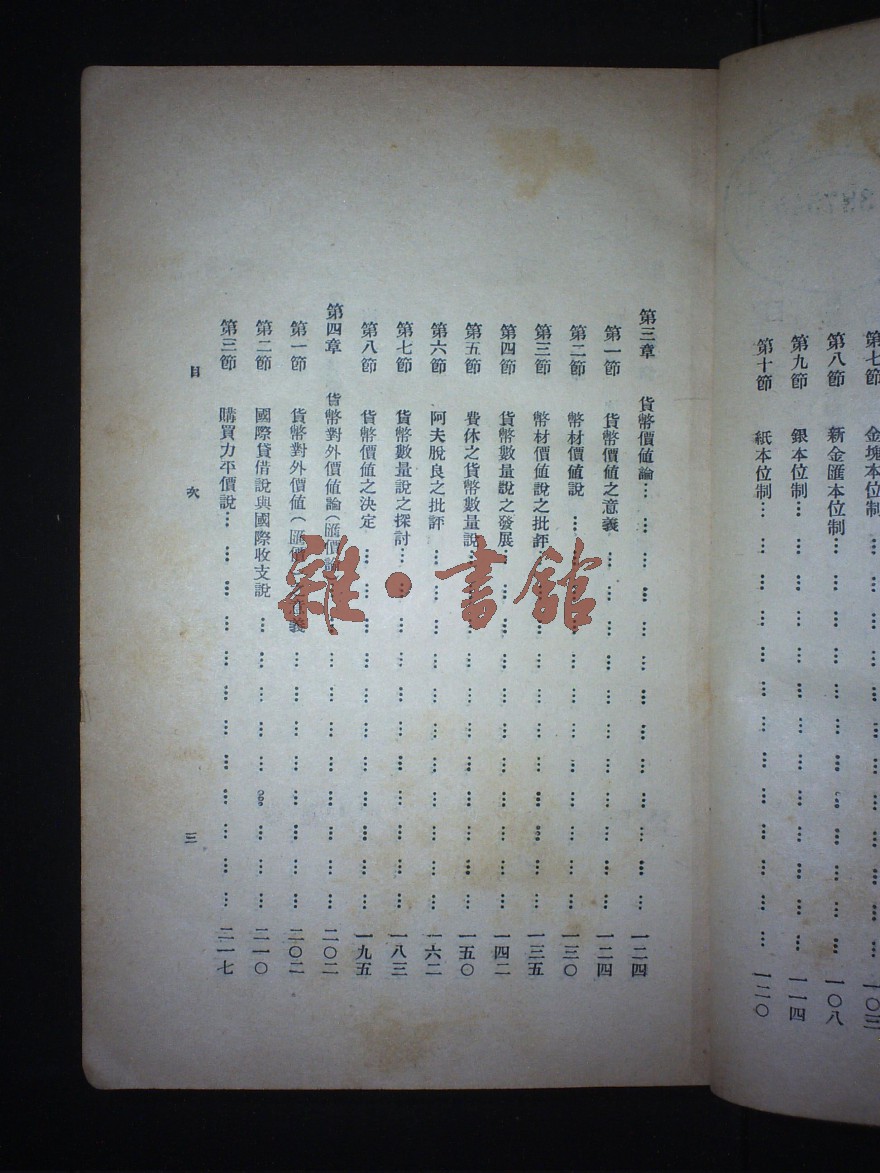 第七節　金塊本位制………一〇三
第八節　新金匯本位制………一〇八
第九節　銀本位制………一一四
第十節　紙本位制………一二〇
第三章　貨幣價値論………一二四
第一節　貨幣價値之意義………一二四
第二節　幣材價値說………一三〇
第三節　幣材價値說之批評………一三五
第四節　貨幣數量說之發展………一四二
第五節　費休之貨幣數量說………一五〇
第六節　阿夫脫良之批評………一六二
第七節　貨幣數量說之探討………一八三
第八節　貨幣價値之決定………一九五
第四章　貨幣對外價値論（匯價論）………二〇二
第一節　貨幣對外價値（匯價）之意義………二〇二
第二節　國際貸借說與國際收支說………二一〇
第三節　購買力平價說………二一七
目次　三
雜·書館